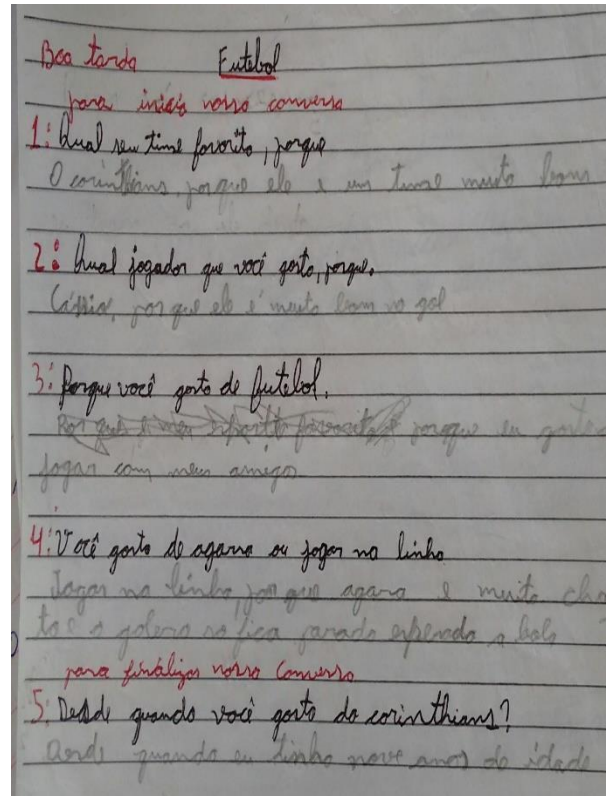 Boa tarda Futebol
para inicia nosso conversa
1: Qual seu time favorito, porque
O corinthians, porque ele e um time muito bom
2: Qual jogador que você gosto, porque.
Cássio, por que ele é muito bom no gol
3: Porque você gosto de futebol.
Por que é meu favorito porque eu gosto
jogar com meus amigos
4: Você gosto de agarra ou jogar na linha
Jogar na linha, por que agarra e muito cha
to e o golero so fica parado a bola
para finalizar nosso conversa
5: Desde quando você gosto do corinthians?
quando eu tinha nove anos de idade